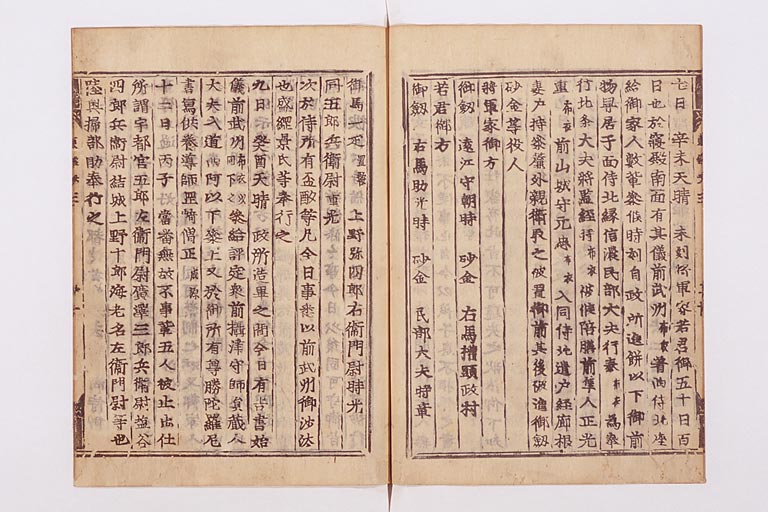 七日 辛未天晴 未刻将軍家若君御五十日百
日也於寝殿南面有其儀前武州 布衣 着西侍北座
給御家人数輩参候時刻自政所進餅以下御前
物等居子西侍北縁信濃民部大夫行泰 布衣 為奉
行北条大夫将監経時 布衣 被候陪膳前隼人正光
重 布衣 前山城守元忠 布衣 入同侍北遣戸経廊根
妻戸持参簾外親衛取之被置御前其後被進御剱
砂金等役人
将軍家御方
御剱 遠江守朝時 砂金 右馬権頭政村
若君御方
御剱 右馬助光時 砂金 民部大夫時章
御馬一疋 置鞍 上野弥四郎右衛門尉時光
同五郎兵衛尉重光
次於侍所有盃酌等凡今日事悉以前武州御沙汰
也盛綱景氏等奉行之
九日 癸酉天晴 政所造畢之間今日有吉書始
儀前武州 布衣 参給評定衆前摂津守師員蔵人
大夫入道西阿以下参上又於御所有尊勝陀羅尼
書写供養導師 僧正
十二日 丙子 当番無故不事輩五人被止出仕
所謂宇都宮五郎左衛門尉廣澤三郎兵衛尉塩谷
四郎兵衛尉結城上野十郎海老名左衛門尉等也
陸奥掃部助奉行之